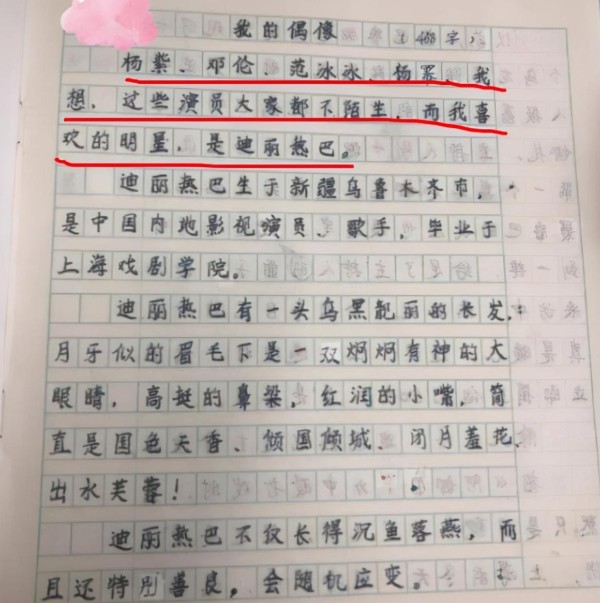 我的偶像（468字）
杨紫、邓伦、范冰冰、杨幂，我
想，这些演员大家都不陌生，而我喜
欢的明星，是迪丽热巴。
迪丽热巴生于新疆乌鲁木齐市，
是中国内地影视演员、歌手，毕业于
上海戏剧学院。
迪丽热巴有一头乌黑靓丽的长发，
月牙似的眉毛下是一双炯炯有神的大
眼睛，高挺的鼻梁，红润的小嘴，简
直是国色天香、倾国倾城、闭月羞花、
出水芙蓉！
迪丽热巴不仅长得沉鱼落燕，而
且还特别善良，会随机应变。